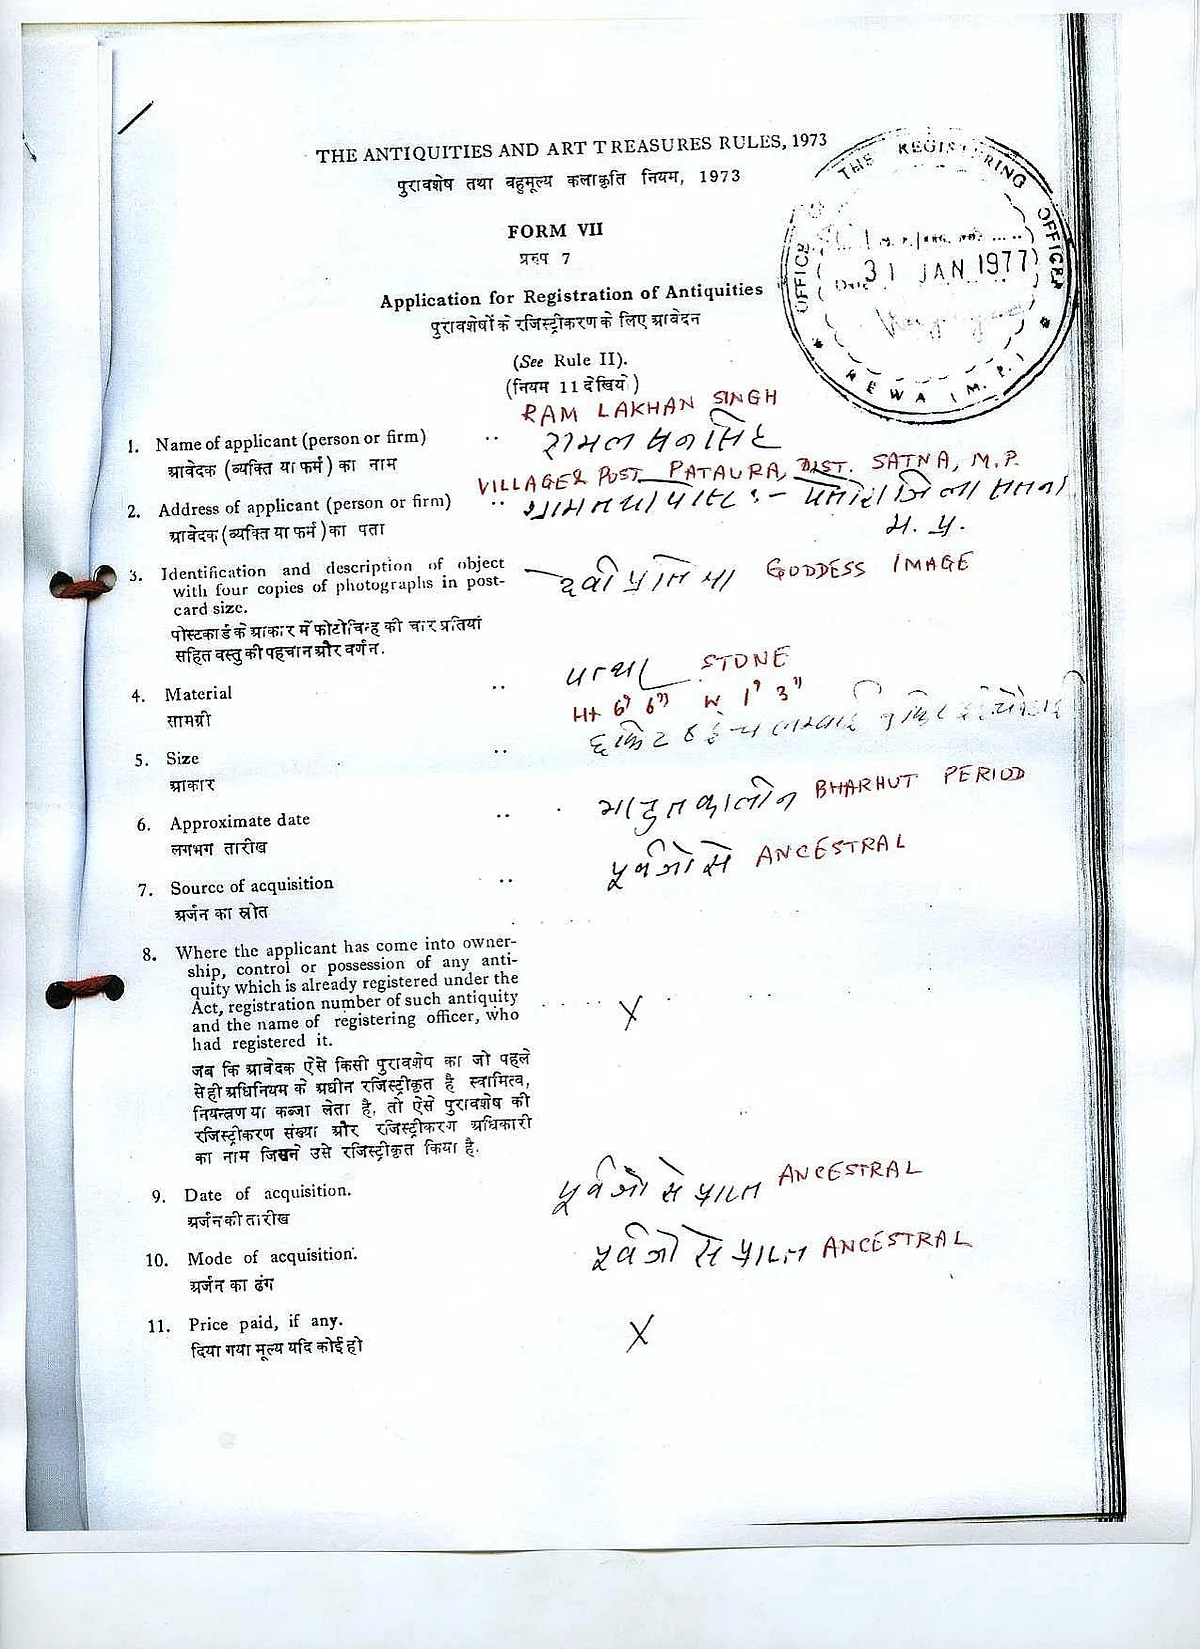 THE ANTIQUITIES AND ART TREASURES RULES, 1973
पुरावशेष तथा बहुमूल्य कलाकृति नियम, 1973
OFFICE OF THE REGISTERING OFFICER
31 JAN 1977
* REWA (M. P.) *
FORM VII
प्ररुप 7
Application for Registration of Antiquities
पुरावशेषों के रजिस्ट्रीकरण के लिए आवेदन
(See Rule II).
(नियम 11 देखिये)
RAM LAKHAN SINGH
1. Name of applicant (person or firm) .. रामलखन सिंह
आवेदक (व्यक्ति या फर्म) का नाम
VILLAGE & POST PATAURA, DIST. SATNA, M.P.
2. Address of applicant (person or firm) .. ग्राम तथा पोस्ट :- पतौरा जिला सतना
आवेदक (व्यक्ति या फर्म) का पता म. प्र.
3. Identification and description of object देवी प्रतिमा GODDESS IMAGE
with four copies of photographs in post-
card size.
पोस्टकार्ड के आकार में फोटोचिन्ह की चार प्रतियां
सहित वस्तु की पहचान और वर्णन.
4. Material .. पत्थर STONE
सामग्री
Ht 6' 6" W. 1' 3"
5. Size ..
आकार
6. Approximate date .. भारहुत कालीन BHARHUT PERIOD
लगभग तारीख
7. Source of acquisition .. पूर्वजों से ANCESTRAL
अर्जन का स्रोत
8. Where the applicant has come into owner-
ship, control or possession of any anti-
quity which is already registered under the
Act, registration number of such antiquity X
and the name of registering officer, who
had registered it.
जब कि आवेदक ऐसे किसी पुरावशेष का जो पहले
से ही अधिनियम के अधीन रजिस्ट्रीकृत है स्वामित्व,
नियन्त्रण या कब्जा लेता है, तो ऐसे पुरावशेष की
रजिस्ट्रीकरण संख्या और रजिस्ट्रीकरण अधिकारी
का नाम जिसने उसे रजिस्ट्रीकृत किया है.
9. Date of acquisition. पूर्वजों से प्राप्त ANCESTRAL
अर्जन की तारीख
10. Mode of acquisition. पूर्वजों से प्राप्त ANCESTRAL
अर्जन का ढंग
11. Price paid, if any. X
दिया गया मूल्य यदि कोई हो